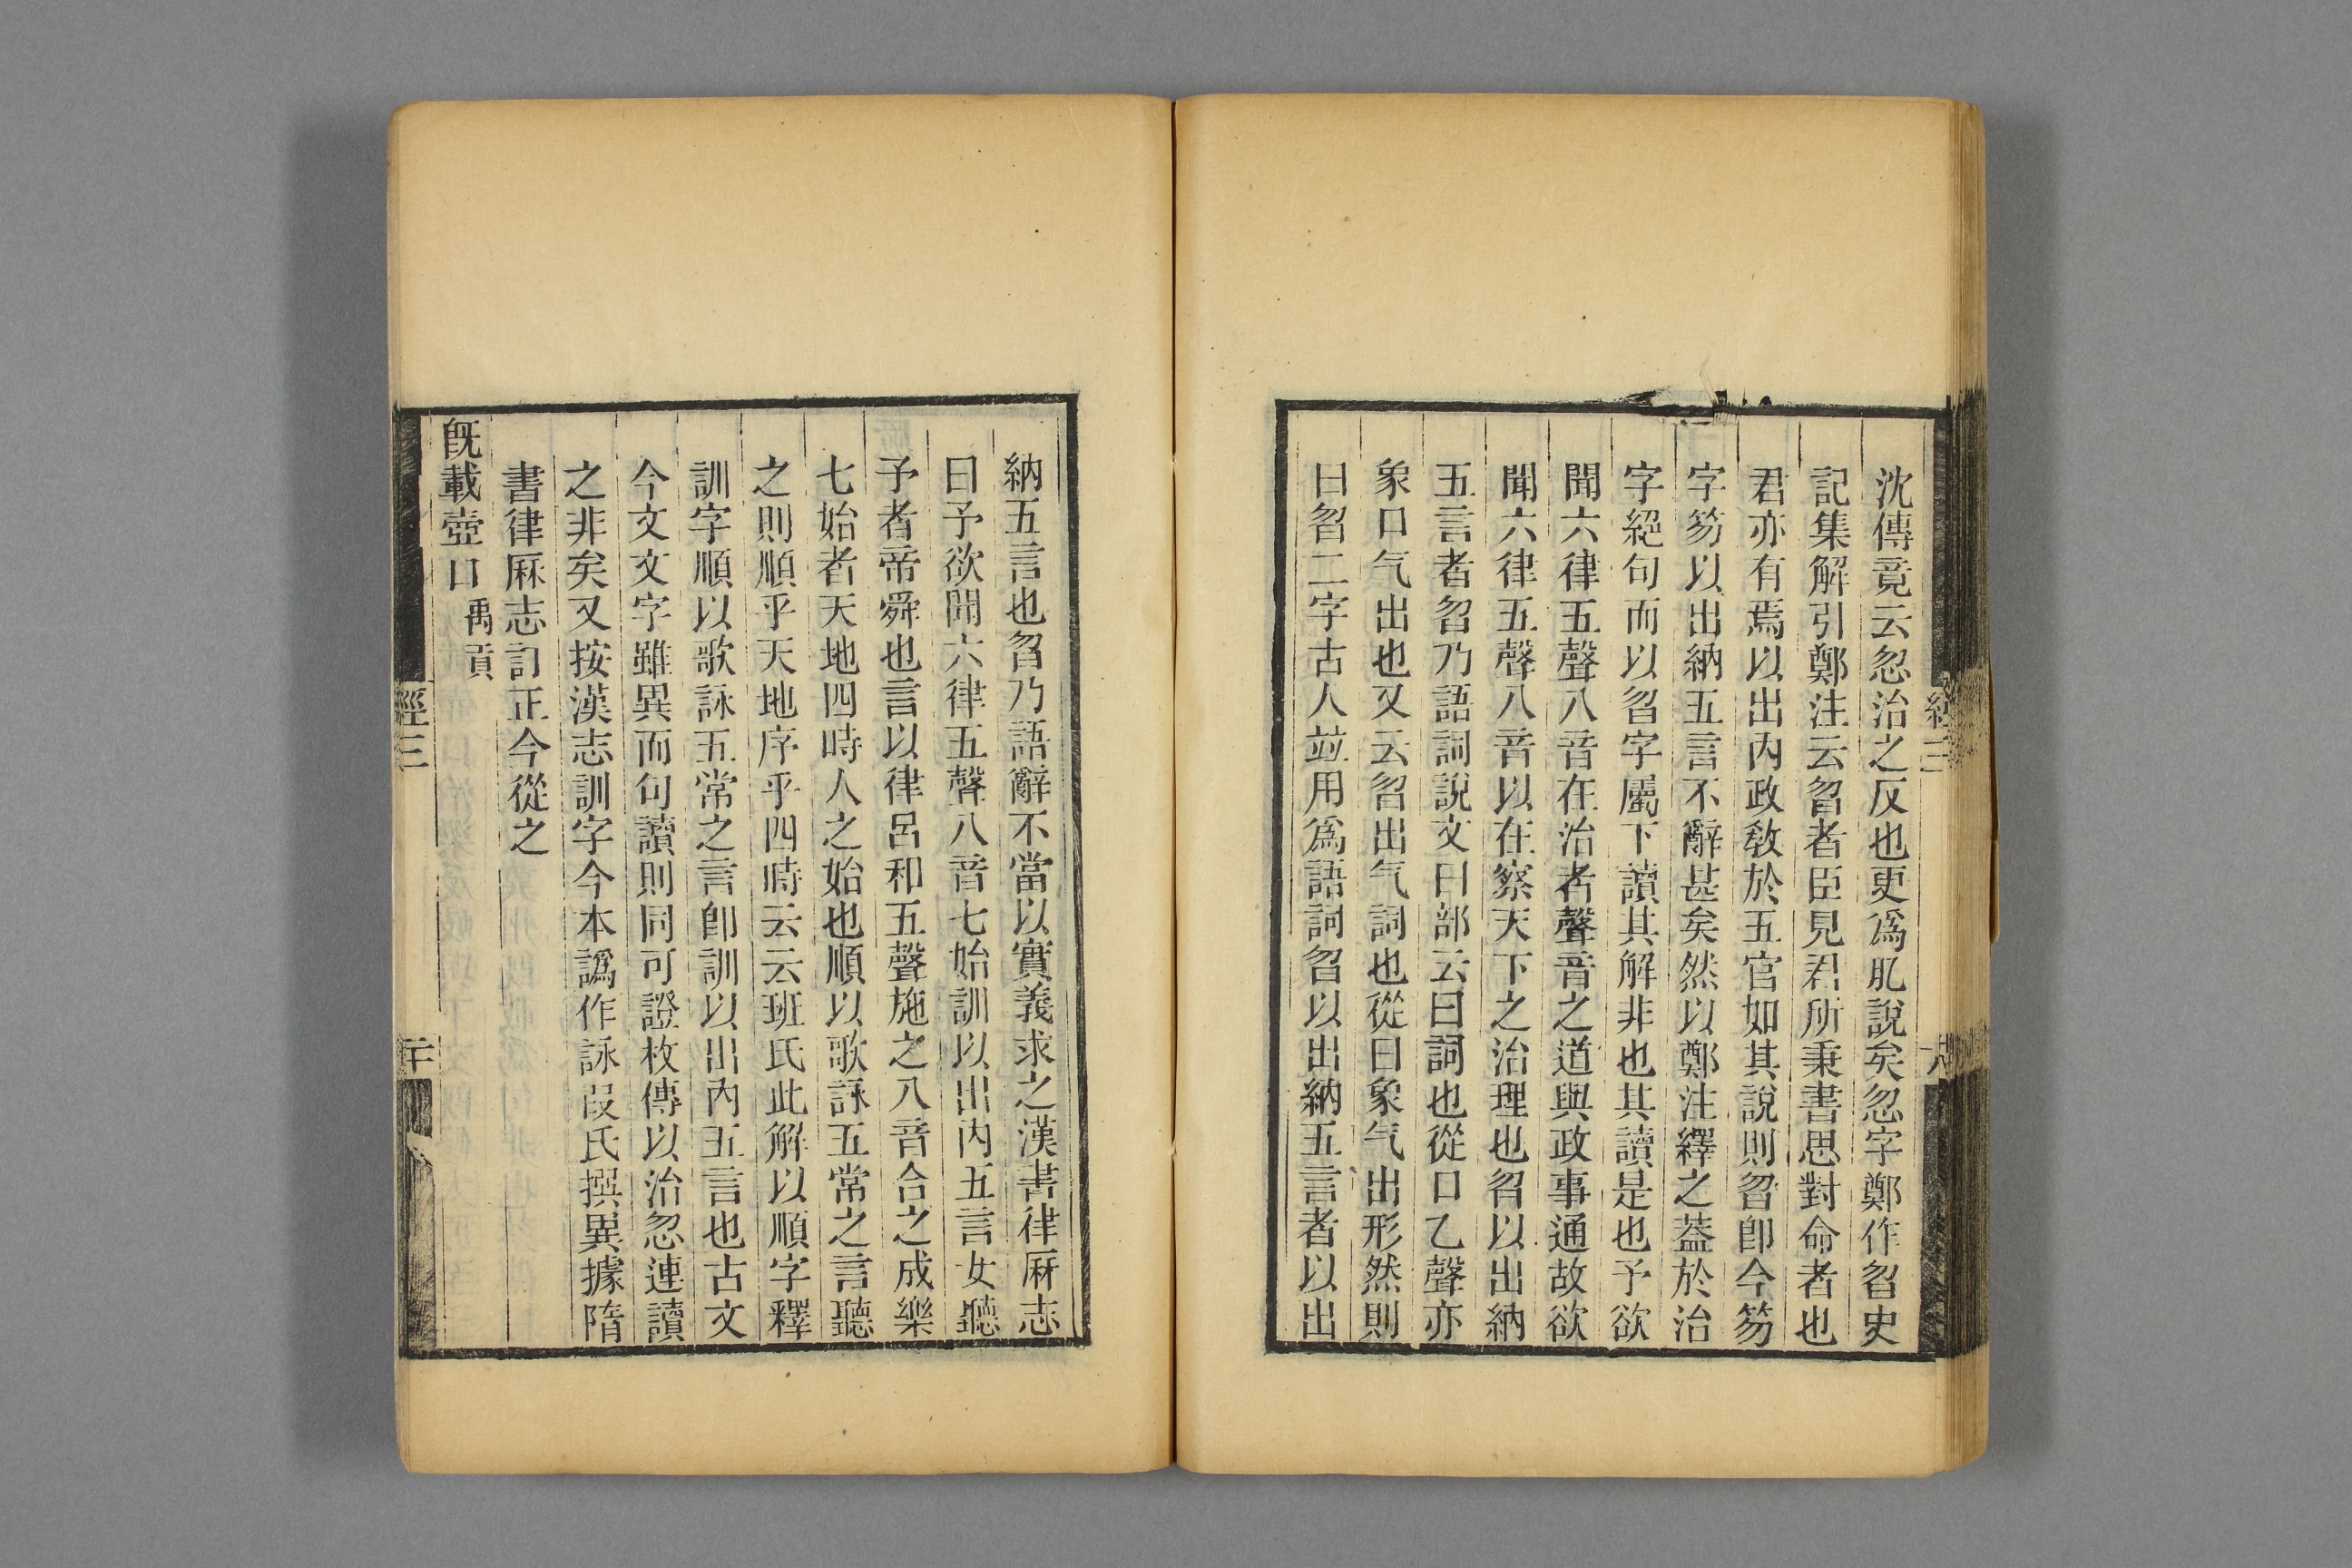 沈傳竟云忽治之反也更爲肊說矣忽字鄭作曶史
記集解引鄭注云曶者臣見君所秉書思對命者也
君亦有焉以出內政敎於五官如其說則曶卽今笏
字笏以出納五言不辭甚矣然以鄭注繹之葢於治
字絕句而以曶字屬下讀其解非也其讀是也予欲
聞六律五聲八音在治者聲音之道與政事通故欲
聞六律五聲八音以在察天下之治理也曶以出納
五言者曶乃語詞說文曰部云曰詞也從口乙聲亦
象口气出也又云曶出气詞也從曰象气出形然則
曰曶二字古人竝用爲語詞曶以出納五言者以出
納五言也曶乃語辭不當以實義求之漢書律厤志
曰予欲聞六律五聲八音七始訓以出內五言女聽
予者帝舜也言以律呂和五聲施之八音合之成樂
七始者天地四時人之始也順以歌詠五常之言聽
之則順乎天地序乎四時云云班氏此解以順字釋
訓字順以歌詠五常之言卽訓以出內五言也古文
今文文字雖異而句讀則同可證枚傳以治忽連讀
之非矣又按漢志訓字今本譌作詠段氏撰異據隋
書律厤志訂正今從之
旣載壺口 禹貢
經三
二十